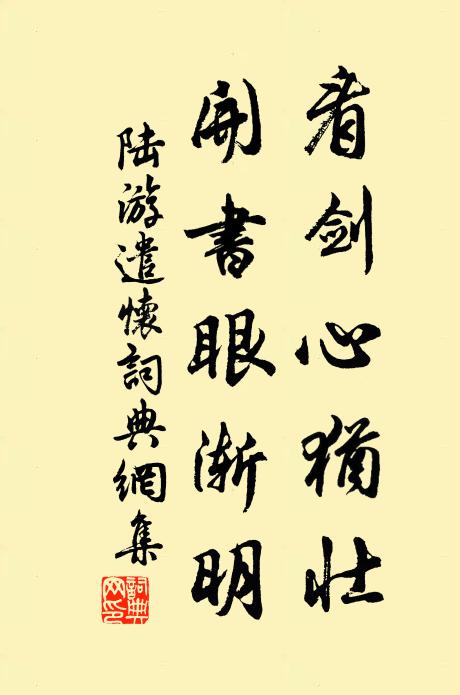 看剑心犹壮
開書眼渐明
陆游遣懷詞典網集
詞典网印